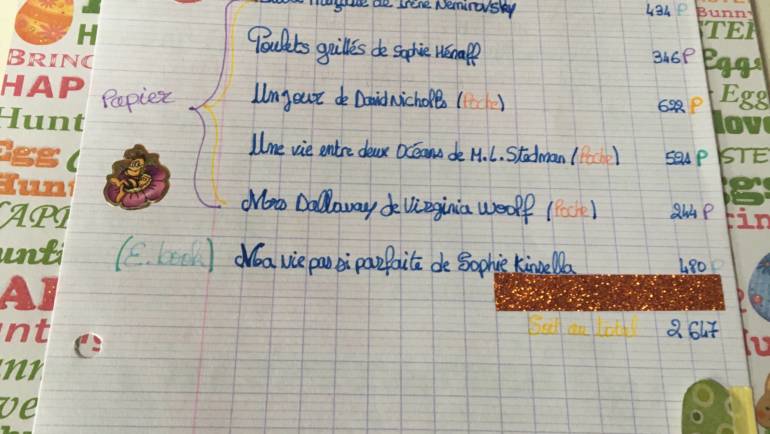 de Irène Nemirovsky 434 P
Poulets grillés de Sophie Hénaff 346 P
Papier
Un jour de David Nicholls (Poche) 622 P
Une vie entre deux Océans de M.L. Stedman (Poche) 521 P
Mrs Dalloway de Virginia Woolf (Poche) 244 P
(E.book) Ma vie pas si parfaite de Sophie Kinsella 480 P
Soit au total 2 647
BRING
HAP
Hunt
Egg
Hunt
Bunn
Eggs
Egg
love